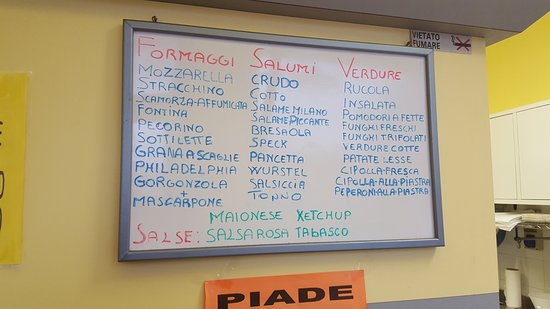 VIETATO
FUMARE
FORMAGGI
MOZZARELLA
STRACCHINO
SCAMORZA-AFFUMICATA
FONTINA
PECORINO
SOTTILETTE
GRANA A SCAGLIE
PHILADELPHIA
GORGONZOLA
+
MASCARPONE
SALUMI
CRUDO
COTTO
SALAME MILANO
SALAME PICCANTE
BRESAOLA
SPECK
PANCETTA
WURSTEL
SALSICCIA
TONNO
VERDURE
RUCOLA
INSALATA
POMODORI A FETTE
FUNGHI FRESCHI
FUNGHI TRIFOLATI
VERDURE COTTE
PATATE LESSE
CIPOLLA-FRESCA
CIPOLLA-ALLA-PIASTRA
PEPERONI-ALLA-PIASTRA
MAIONESE KETCHUP
SALSE: SALSA ROSA TABASCO
PIADE